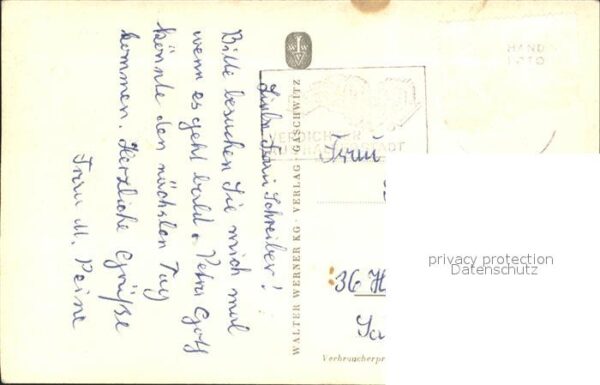 Liebe Frau Schreiber!
Bitte besuchen Sie mich mal
wenn es geht bald. Petra Golf
könnte den nächsten Tag
kommen. Herzliche Grüße
Frau M. Peine
WALTER WERNER KG · VERLAG · GASCHWITZ
W
HAND
FOTO
Frau
36 H
Verbraucherpr
privacy protection
Datenschutz